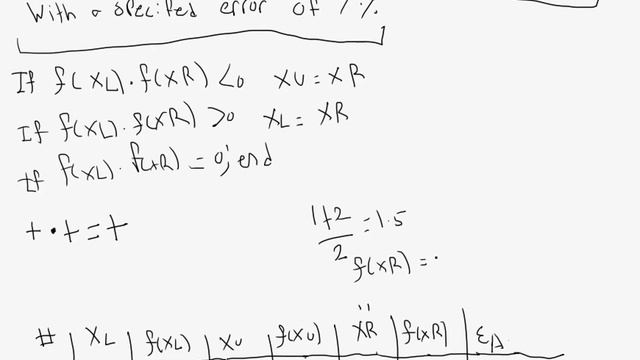 With a specified error of 1%
If f(XL) . f(XR) <0 XU = XR
If f(XL) . f(XR) >0 XL = XR
If f(XL) . f(XR) = 0; end
+ • + = +
1+2
= 1.5
2
f(XR) = .
# | XL | f(XL) | XU | f(XU) | XR | f(XR) | εA